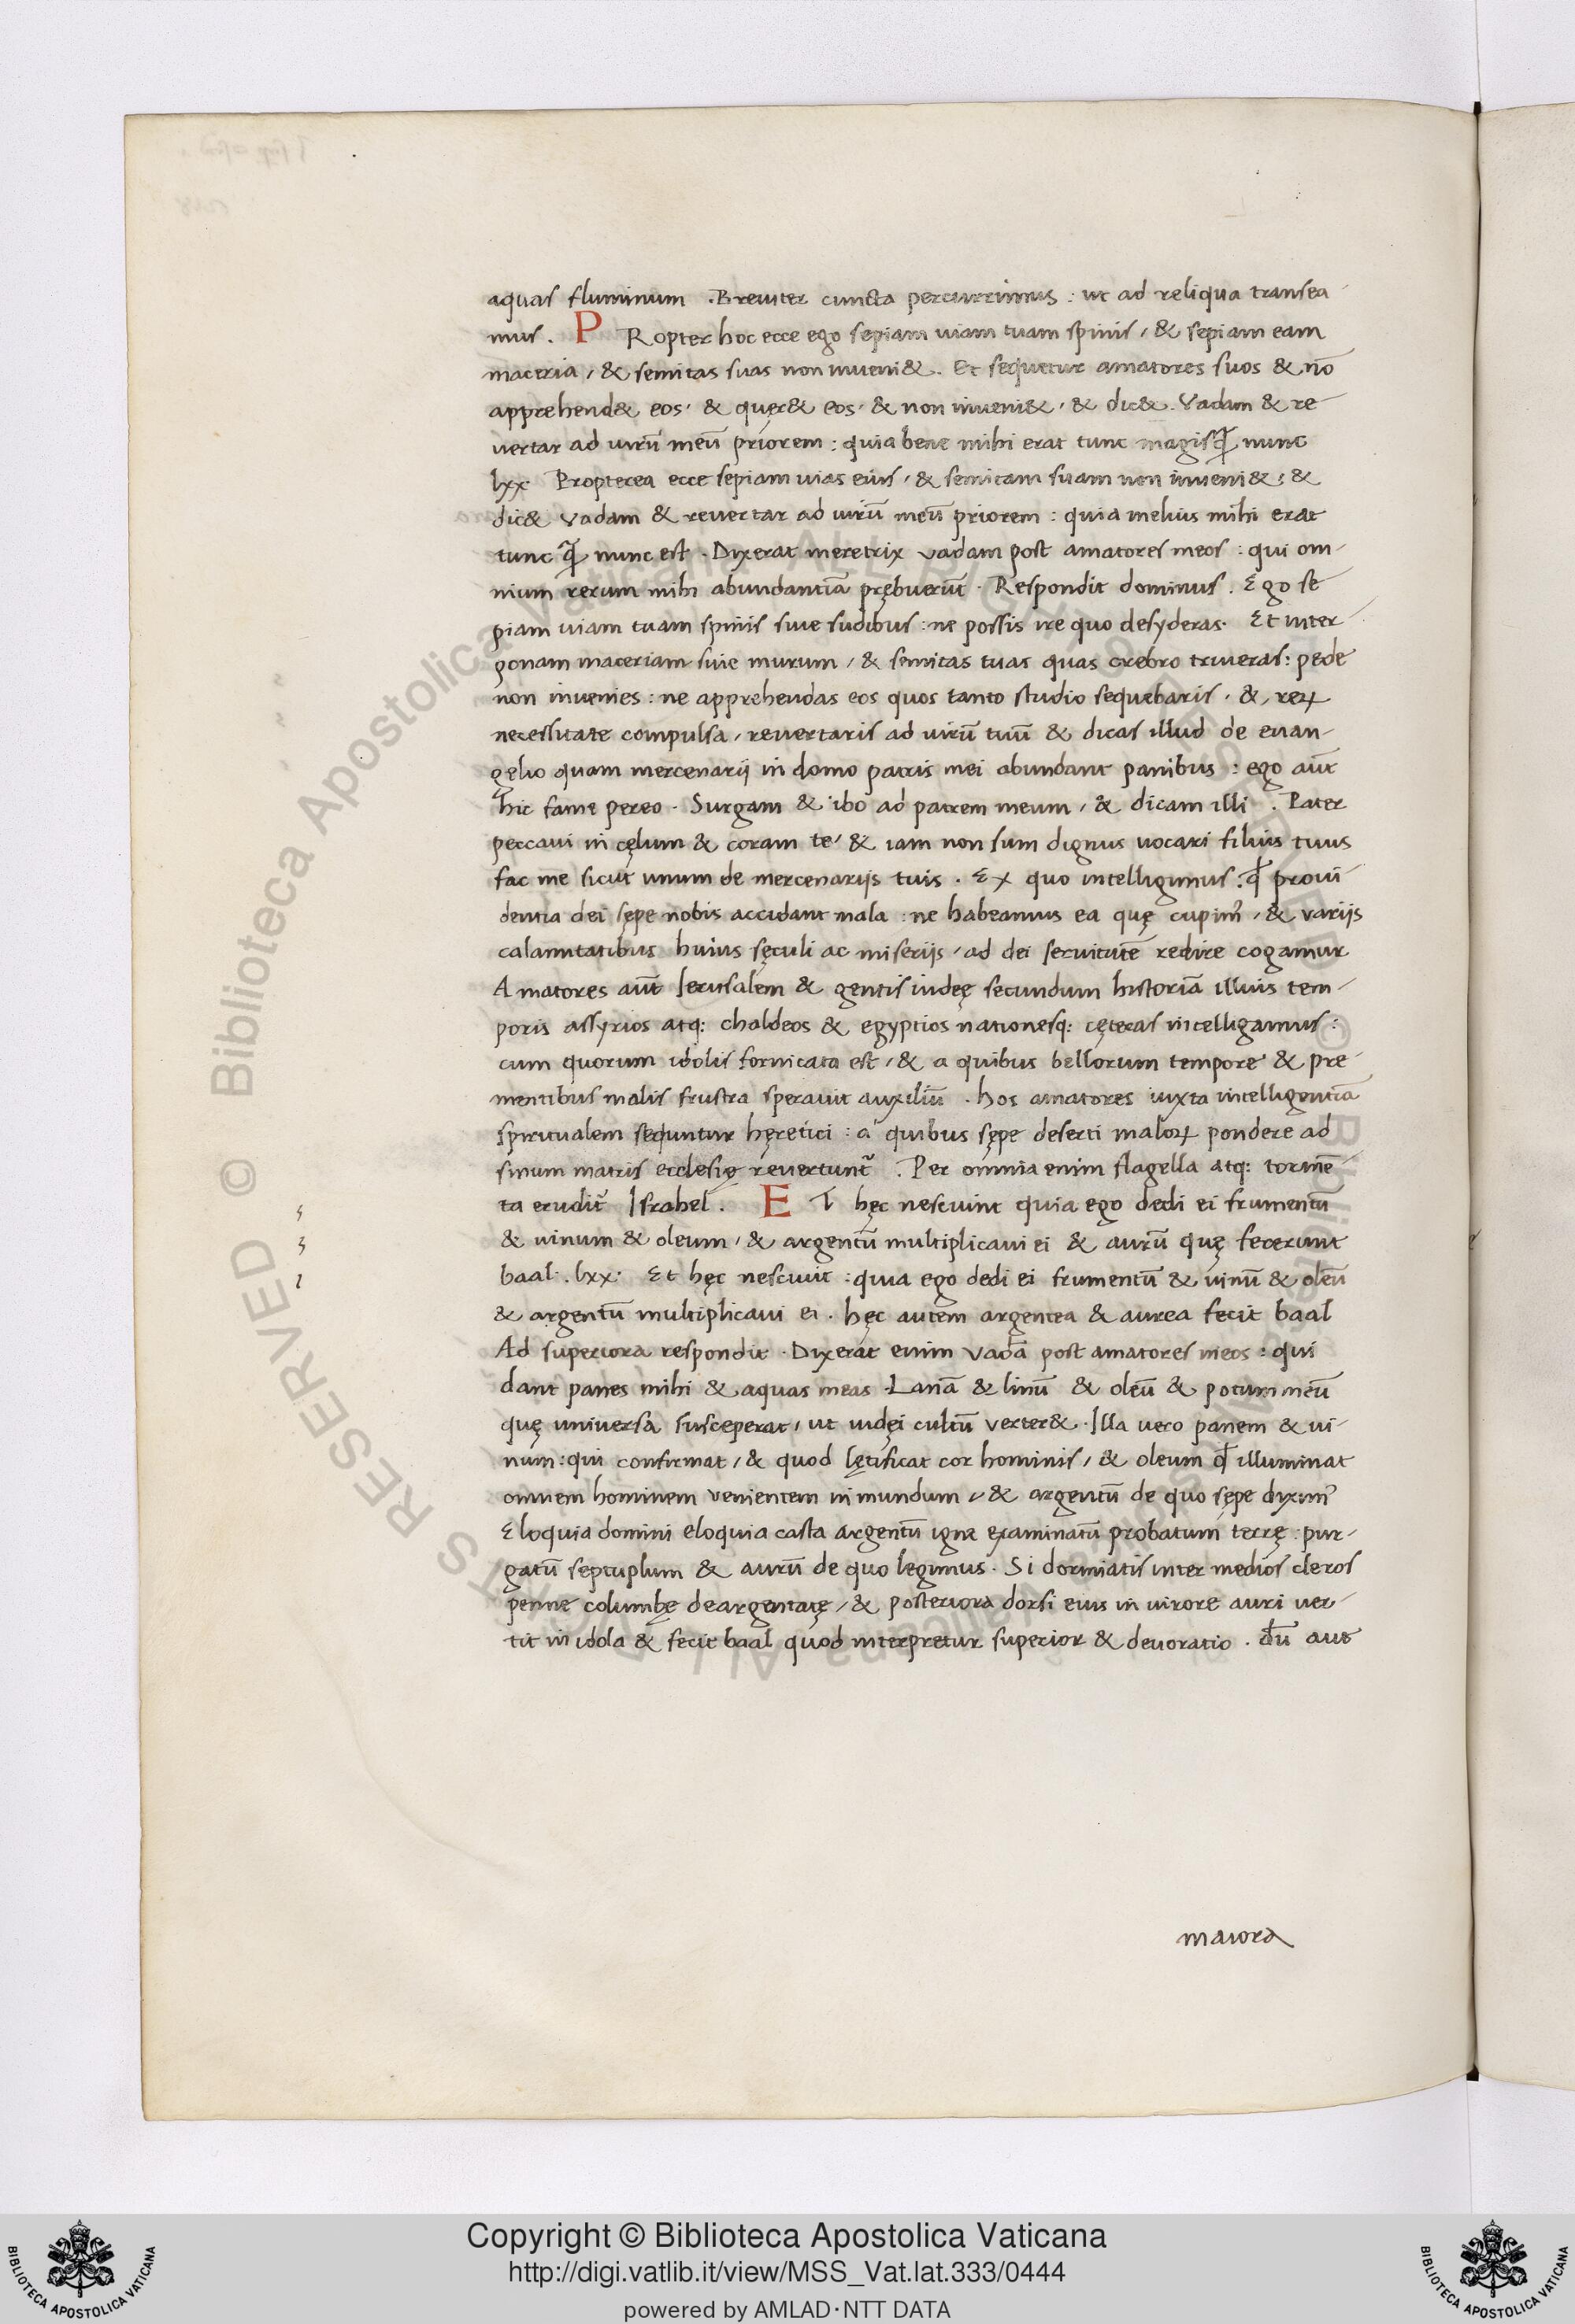 aquas fluminum . Breuiter cuncta percurrimus : ut ad reliqua transea-
mus . P Ropter hoc ecce ego sepiam uiam tuam spinis / & sepiam eam
maceria / & semitas suas non inueni& . Et sequetur amatores suos & nō
apprehend& eos / & quęr& eos / & non inueni& / & dic& . Vadam & re-
vertar ad uirū meū priorem : quia bene mihi erat tunc magisq̄ nunc
lxx Propterea ecce sepiam uias eius / & semitam suam non inueni& : &
dic& vadam & reuertar ad uirū meū priorem : quia melius mihi erat
tunc q̄ nunc est . Dixerat meretrix vadam post amatores meos : qui om-
nium rerum mihi abundantiā prębuerūt . Respondit dominus . Ego se-
piam uiam tuam spinis siue sudibus : ne possis ire quo desyderas . Et inter-
ponam maceriam siue murum / & semitas tuas quas crebro triueras : pede
non inuenies : ne apprehendas eos quos tanto studio sequebaris . & , rerꝝ
necessitate compulsa / reuertaris ad uirū tuū & dicas illud de euan-
gelio quam mercenarij in domo patris mei abundant panibus : ego aūt
hic fame pereo . Surgam & ibo ad patrem meum / & dicam illi . Pater
peccaui in cęlum & coram te / & iam non sum dignus uocari filius tuus
fac me sicut unum de mercenarijs tuis . Ex quo intelligimus . qđ proui-
dentia dei sępe nobis accidant mala : ne habeamus ea quę cupim9 / & varijs
calamitatibus huius sęculi ac miserijs / ad dei seruitutē redire cogamur
Amatores aūt Ierusalem & gentis iudeę secundum historiā illius tem-
poris assyrios atq: chaldeos & egyptios nationesq: cęteras intelligamus :
cum quorum idolis fornicata est / & a quibus bellorum tempore & pre-
mentibus malis frustra sperauit auxiliū . Hos amatores iuxta intelligentiā
spiritualem sequntur hęretici : a quibus sępe deserti malorꝝ pondere ad
sinum matris ecclesię revertunt᷑ . Per omnia enim flagella atq: tormē-
ta erudit᷑ Israhel . E T hęc nesciuint quia ego dedi ei frumentū
& uinum & oleum / & argentū multiplicaui ei & aurū quę fecerunt
baal . lxx . Et hęc nesciuit : quia ego dedi ei frumentū & uinū & oleū
& argentū multiplicaui ei . hęc autem argentea & aurea fecit baal
Ad superiora respondit . Dixerat enim vadā post amatores meos : qui
dant panes mihi & aquas meas . Lanā & linū & oleū & potum meū
quę universa susceperat / ut iudęi cultū verter& . Illa uero panem & ui-
num : qui confirmat / & quod lętificat cor hominis / & oleum qđ illuminat
omnem hominem venientem in mundum / & argentū de quo sępe dixim9
Eloquia domini eloquia casta argentū igne examinatū probatum terrę : pur-
gatū septuplum & aurū de quo legimus . Si dormiatis inter medios cleros
penne columbę deargentatę / & posteriora dorsi eius in uirore auri uer-
tit in idola & fecit baal quod interpretur superior & deuoratio . Dū aut
maiora
Copyright © Biblioteca Apostolica Vaticana
http://digi.vatlib.it/view/MSS_Vat.lat.333/0444
powered by AMLAD·NTT DATA